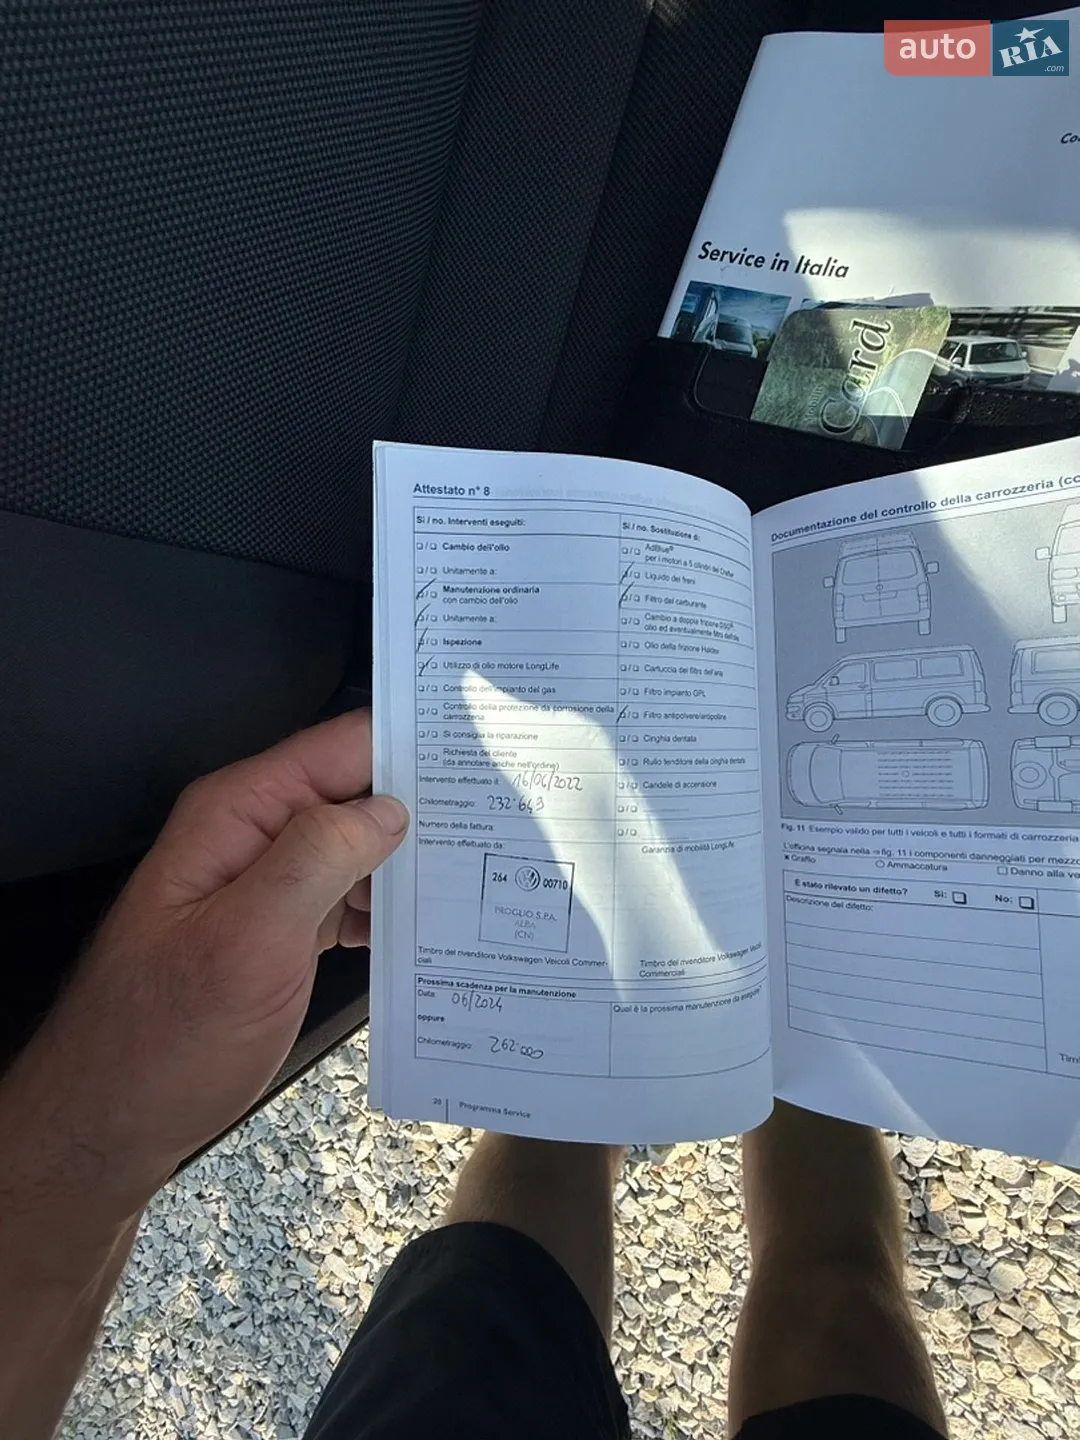 auto RIA .com
Service in Italia
Card
Attestato n° 8
Sì / no. Interventi eseguiti:
Cambio dell'olio
Unitamente a:
Manutenzione ordinaria
con cambio dell'olio
Unitamente a:
Ispezione
Utilizzo di olio motore LongLife
Controllo dell'impianto del gas
Controllo della protezione da corrosione della
carrozzeria
Si consiglia la riparazione
Richiesta del cliente
(da annotare anche nell'ordine)
Intervento effettuato il: 16/06/2022
Chilometraggio: 232.643
Numero della fattura:
Intervento effettuato da:
264 00710
PROGLIO S.P.A.
ALBA
(CN)
Timbro del rivenditore Volkswagen Veicoli Commer-
ciali
Prossima scadenza per la manutenzione
Data: 06/2024
oppure
Chilometraggio: 262.000
20 Programma Service
Sì / no. Sostituzione di:
AdBlue®
per i motori a 5 cilindri del Crafter
Liquido dei freni
Filtro del carburante
Cambio a doppia frizione DSG®,
olio ed eventualmente filtro dell'olio
Olio della frizione Haldex
Cartuccia del filtro dell'aria
Filtro impianto GPL
Filtro antipolvere/antipolline
Cinghia dentata
Rullo tenditore della cinghia dentata
Candele di accensione
Garanzia di mobilità LongLife
Timbro del rivenditore Volkswagen Veicoli
Commerciali
Qual è la prossima manutenzione da eseguire?
Documentazione del controllo della carrozzeria
Fig. 11 Esempio valido per tutti i veicoli e tutti i formati di carrozzeria
L'officina segnala nella ⇒fig. 11 i componenti danneggiati per mezzo
× Graffio ○ Ammaccatura □ Danno alla
È stato rilevato un difetto? Sì: No:
Descrizione del difetto: